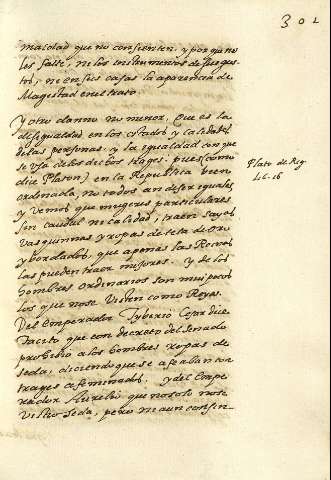 302
maldad que no consienten. y porque no
les falte, ni los instrumentos de sus gus-
tos, ni en sus casas la aparencia de
Magestad en el trato
Y otro danno no menor, que es la
desigualdad en los estados y calidades
de las personas, y la igualdad con que
se usa de los dichos trages. pues (como
dice Platon) en la Republica bien
ordenada, no todos an de ser iguales
Plato de Reg
Li. 16
y vemos que mugeres particulares
sin caudal ni calidad, traen sayas
vasquinnas y ropas de tela de oro
y bordados, que apenas las Reinas
las pueden traer mejores. y de los
hombres ordinarios son mui pocos
los que no se visten como Reyes.
Del Emperador Tyberio Cesar dice
Tacito que con decreto del Senado
prohibio a los hombres ropas de
seda, diciendo que se afeaban con
trages afeminados. y del Empe-
rador Aurelio que no solo no se
vistio seda, pero ni aun consin-